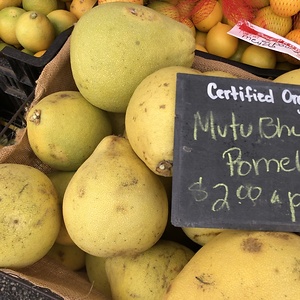 Certified Org
Mutu Bh
Pomel
$2.00 a p